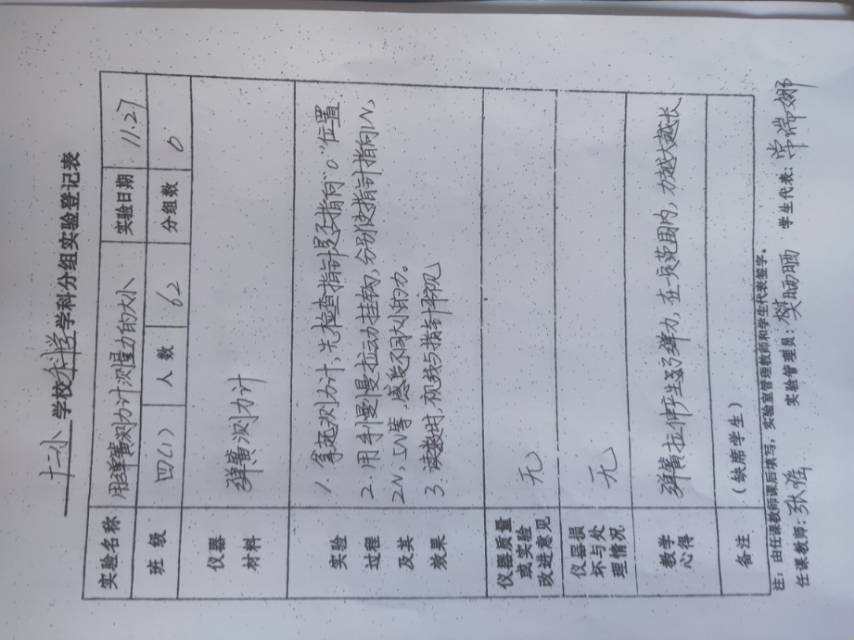 十二小学校科学学科分组实验登记表
实验名称 用弹簧测力计测量力的大小 实验日期 11.27
班级 四(1) 人数 62 分组数 0
仪器材料 弹簧测力计
实验过程及其效果
1. 拿起测力计,先检查指针是否指向"0"位置
2. 用手慢慢拉动挂钩,分别使指针指向1N,
2N,5N等,感受不同大小的力。
3. 读数时,视线与指针平视
仪器质量或实验改进意见 无
仪器损坏与处理情况 无
教学心得 弹簧拉伸产生了弹力,在一定范围内,力越大越长
备注 (缺席学生)
注:由任课教师课后填写,实验室管理教师和学生代表签字。
任课教师: 实验管理员:樊晒晒 学生代表:常瑞娜